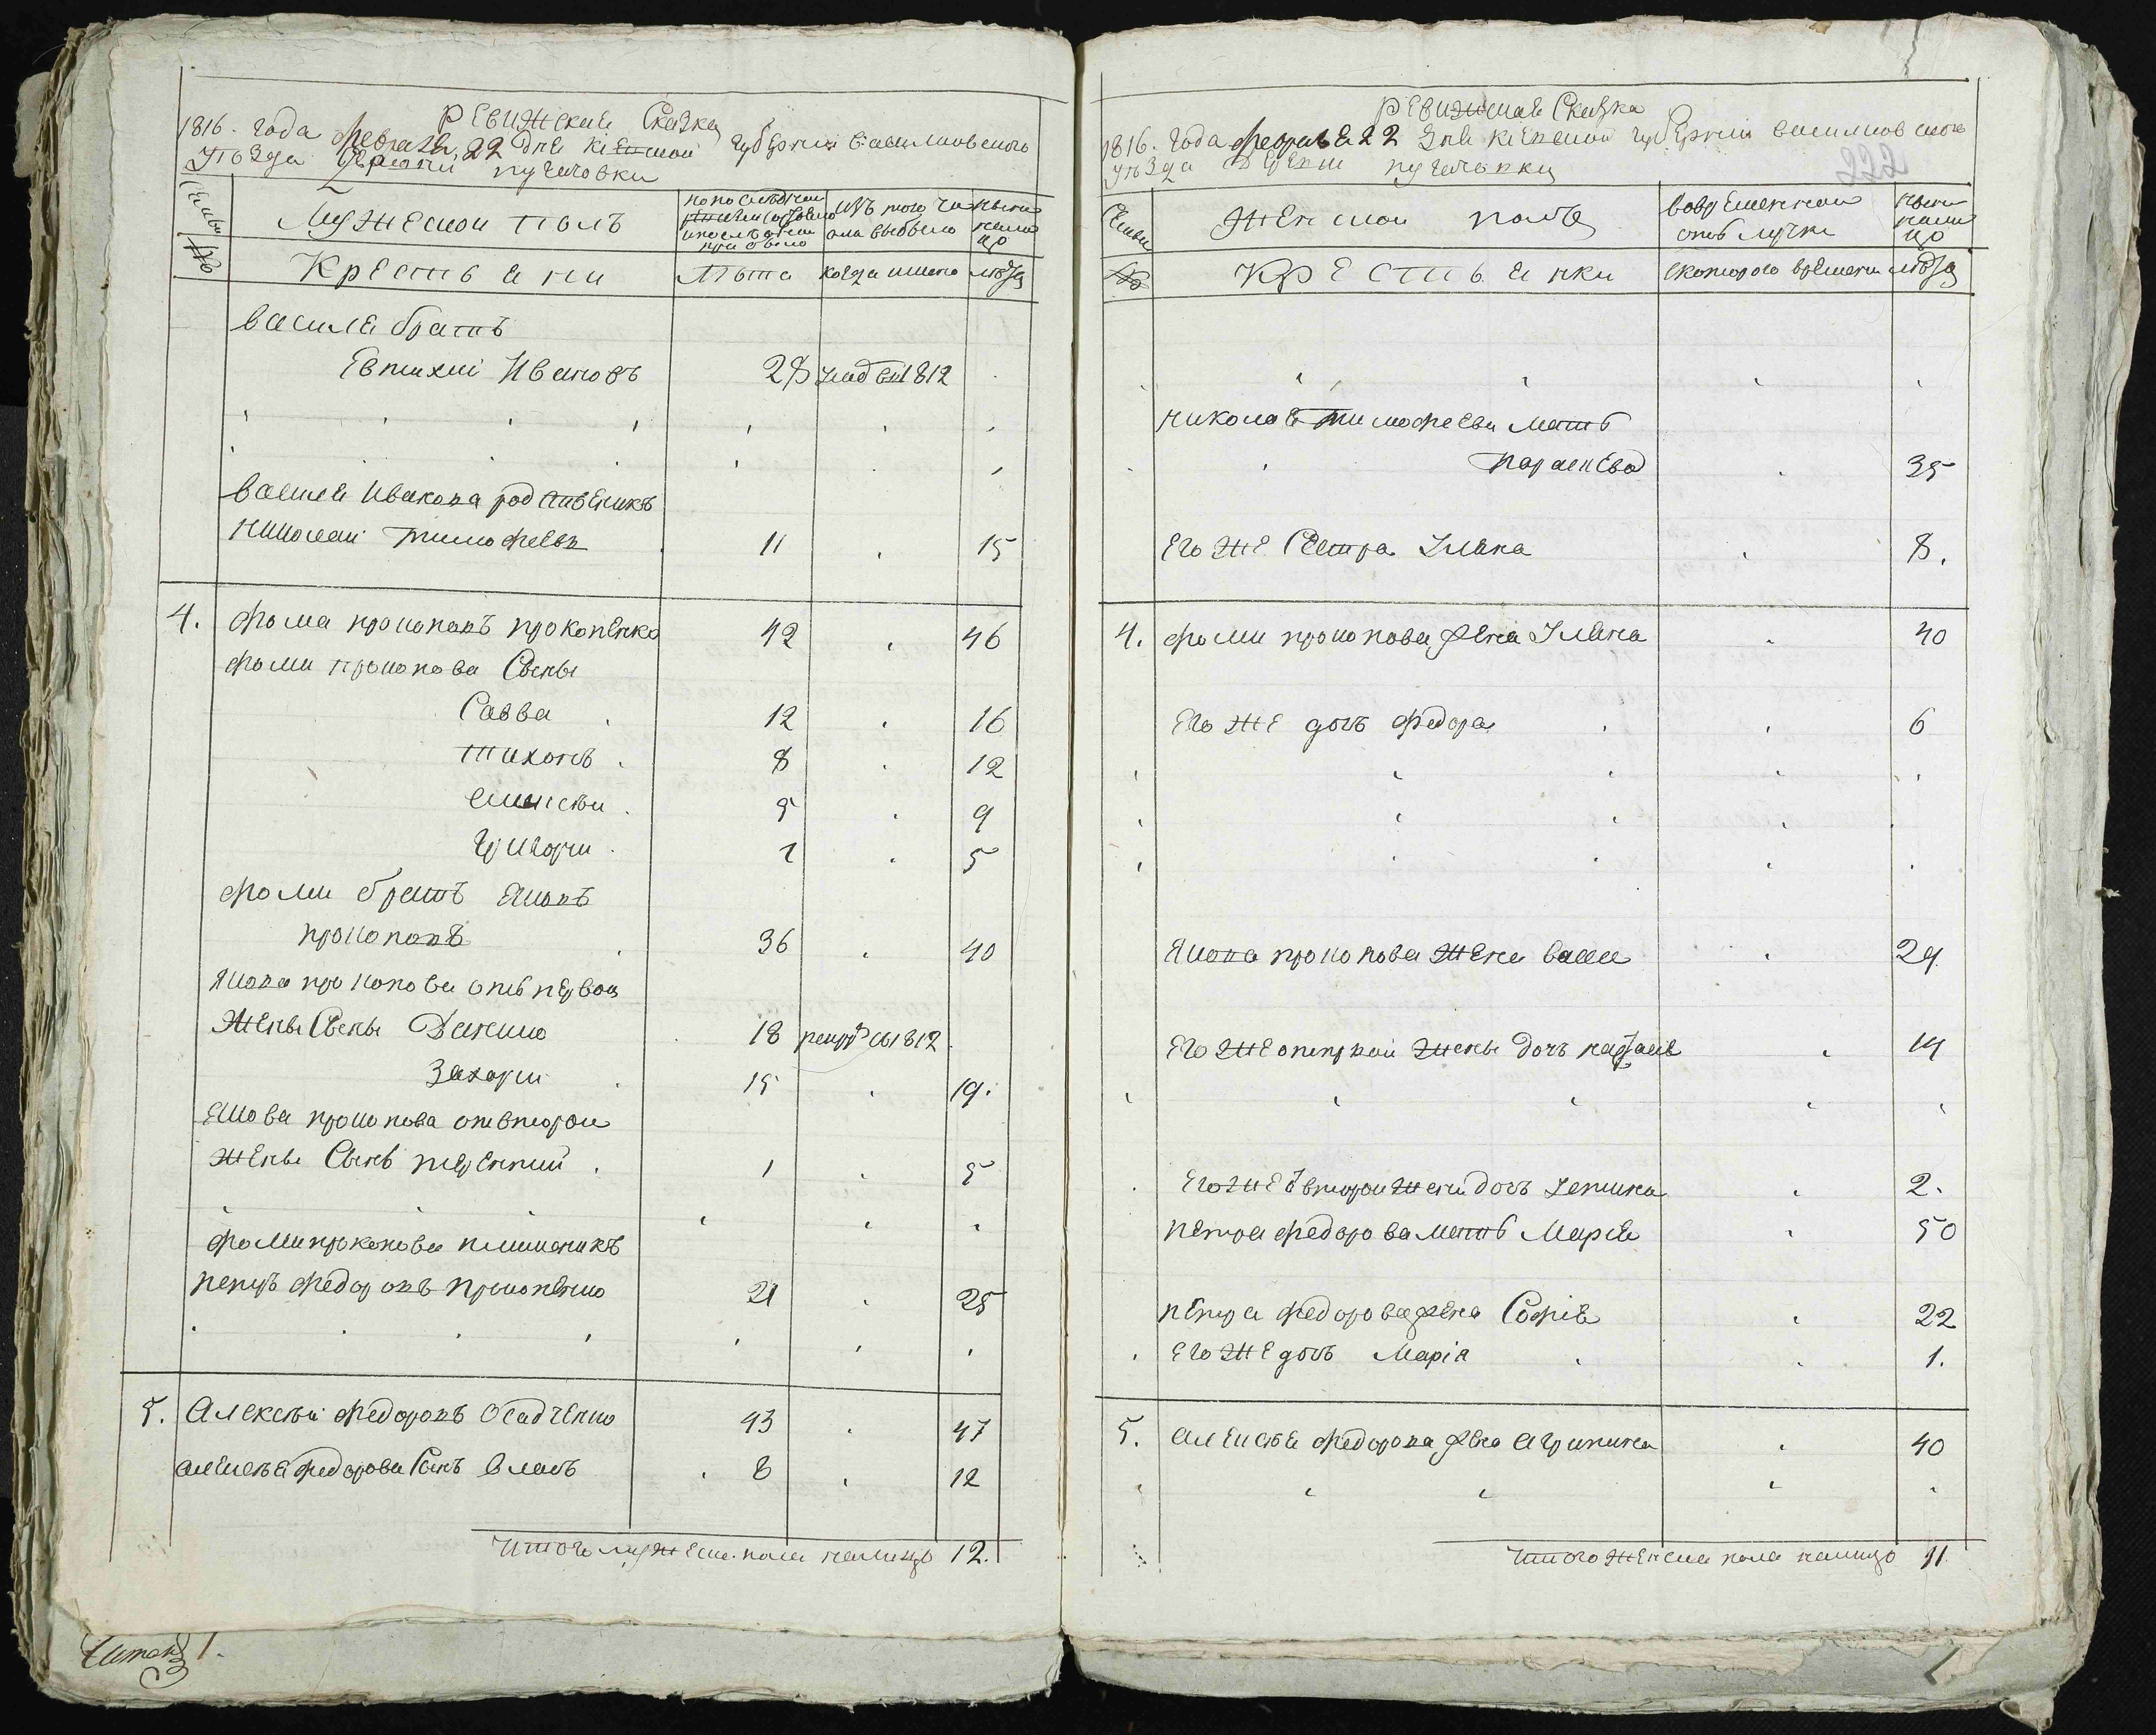 Ревижская Сказка
1816. года февраля 22 дня киевской губернии василковского
уѣзда деревни пугачовки
Семьи
№
Мужеской полъ
по последней
ревизии состояло
и после оной
прибыло
изъ того чи
сла выбыло
ныне
на ли
цо
Крестьяни
Лѣта
когда имено
Лѣта
василя братъ
Евтихий Ивановъ 28 умер в 1812
василя Иванова родственикъ
Николай тимофеевъ 11 15
4. фома прокоповъ прокопенко 42 46
фоми прокопова Сыны
Савва 12 16
тихонъ 8 12
алексѣи 5 9
григорий 1 5
фоми братъ яковъ
прокоповъ 36 40
якова прокопова отъ первой
жены Сыны Данило 18 рекрут в 1812
Захарий 15 19.
якова прокопова от второй
жены Сынъ терентий 1 5
фоми прокопова племеникъ
петръ федоровъ прокопенко 21 25
5. Алексѣй федоровъ Осадченко 43 47
алексѣя федорова Сынъ власъ 8 12
Итого мужеска пола налицо 12.
Читанъ 1.
Ревижская Сказка
1816. года февраля 22 дня киевской губернии василковского
уѣзда деревни пугачовки
222
Семьи
№
Женской полъ
вовременной
отлучке
ныне
нали
цо
Крестьянки
с которого времени
Лѣта
николая тимофеева мать
параскева 35
его же Сестра Уляна 8.
4. фоми прокопова жена Уляна 40
его же дочь федора 6
якова прокопова жена васса 29
его же от первой жены дочь настасия 14
его же от второй жены дочь устина 2.
петра федорова мать Мария 50
петра федорова жена София 22
его же дочь Марія 1.
5. алексѣя федорова жена агрипина 40
Итого женска пола налицо 11